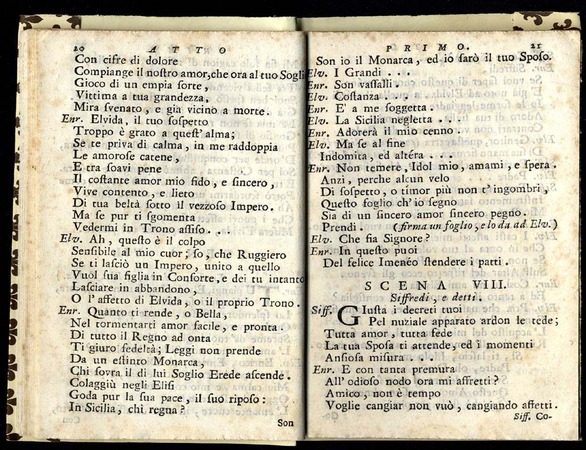 20 ATTO
Con cifre di dolore
Compiange il nostro amor, che ora al tuo Sogli
Gioco di un empia sorte,
Vittima a tua grandezza,
Mira svenato, e già vicino a morte.
Enr. Elvida, il tuo sospetto
Troppo è grato a quest' alma;
Se te priva di calma, in me raddoppia
Le amorose catene,
E tra soavi pene
Il costante amor mio fido, e sincero,
Vive contento, e lieto
Di tua beltà sotto il vezzoso Impero.
Ma se pur ti sgomenta
Vedermi in Trono assiso...
Elv. Ah, questo è il colpo
Sensibile al mio cuor; so, che Ruggiero
Se ti lasciò un Impero, unito a quello
Vuol sua figlia in Consorte, e dei tu intanto
Lasciare in abbandono,
O l' affetto di Elvida, o il proprio Trono.
Enr. Quanto ti rende, o Bella,
Nel tormentarti amor facile, e pronta.
Di tutto il Regno ad onta
Ti giuro fedeltà; Leggi non prende
Da un estinto Monarca,
Chi sovra il di lui Soglio Erede ascende.
Colaggiù negli Elisi
Goda pur la sua pace, il suo riposo:
In Sicilia, chi regna?
Son
PRIMO. 21
Son io il Monarca, ed io sarò il tuo Sposo.
Elv. I Grandi...
Enr. Son vassalli.
Elv. Costanza...
Enr. E' a me soggetta.
Elv. La Sicilia negletta...
Enr. Adorerà il mio cenno.
Elv. Ma se al fine
Indomita, ed altéra...
Enr. Non temere, Idol mio, amami, e spera.
Anzi, perche alcun velo
Di sospetto, o timor più non t' ingombri,
Questo foglio ch' io segno
Sia di un sincero amor sincero pegno.
Prendi. (firma un foglio, e lo da ad Elv.)
Elv. Che fia Signore?
Enr. In questo puoi
Del felice Imenéo stendere i patti.
SCENA VIII.
Siffredi, e detti.
Siff. Giusta i decreti tuoi
Pel nuziale apparato ardon le tede;
Tutta amor, tutta fede
La tua Sposa ti attende, ed i momenti
Ansiosa misura....
Enr. E con tanta premura
All' odioso nodo ora mi affretti?
Amico, non è tempo
Voglie cangiar non vuò, cangiando affetti.
Siff. Co-